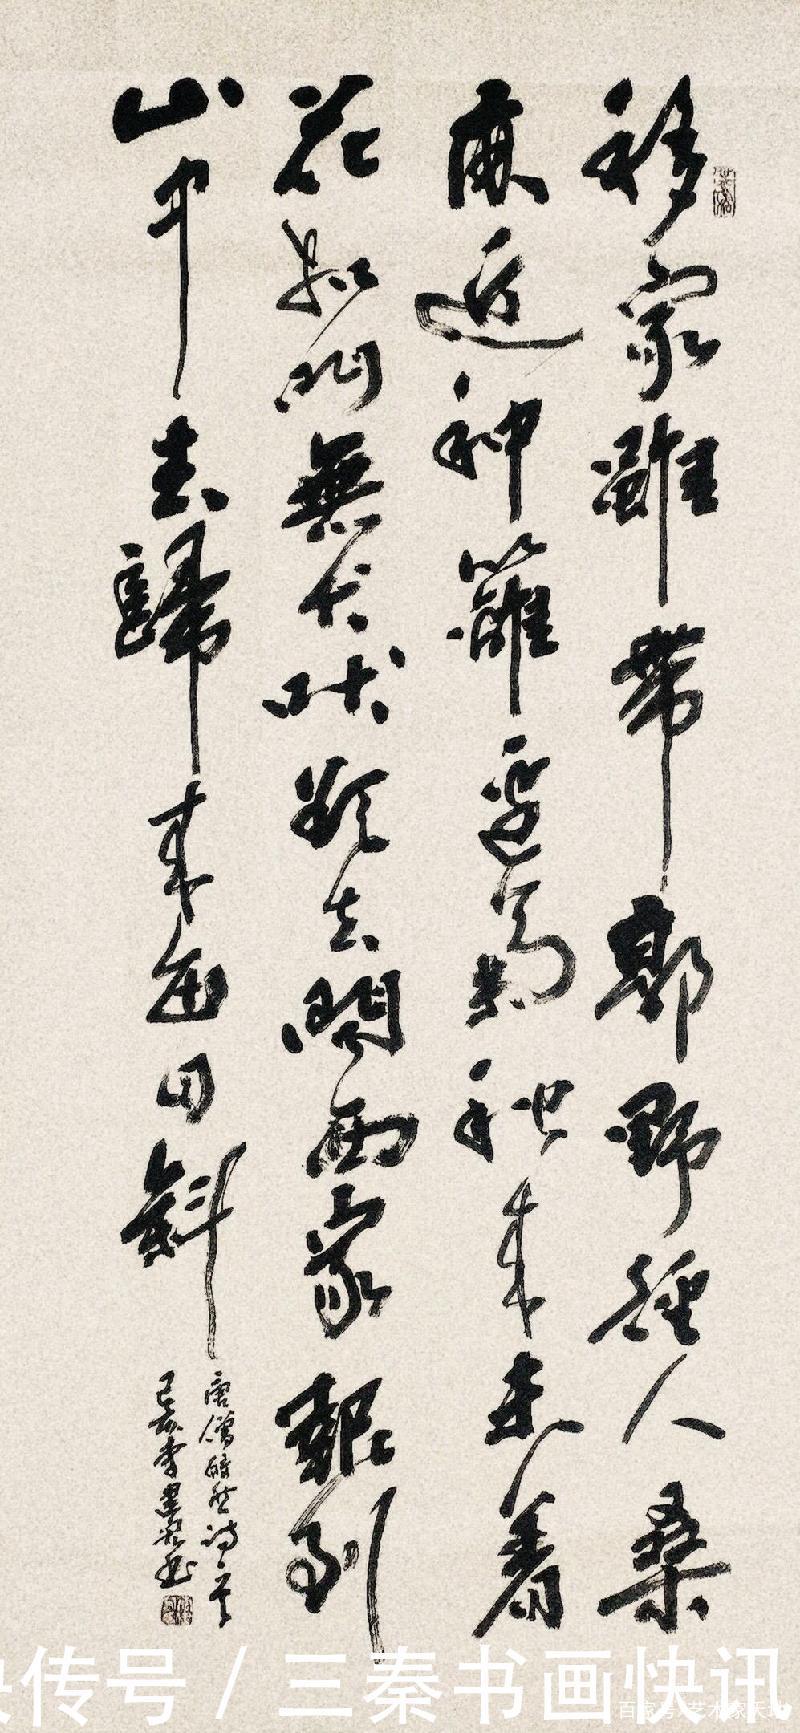 移家雖帶郭野徑入桑
麻近种籬邊菊秋来未着
花扣門無犬吠欲去問西家報到
山中去歸来每日斜
唐僧皎然詩一首
己亥李建书
快传号 / 三秦书画快讯
百家号/艺术家天地